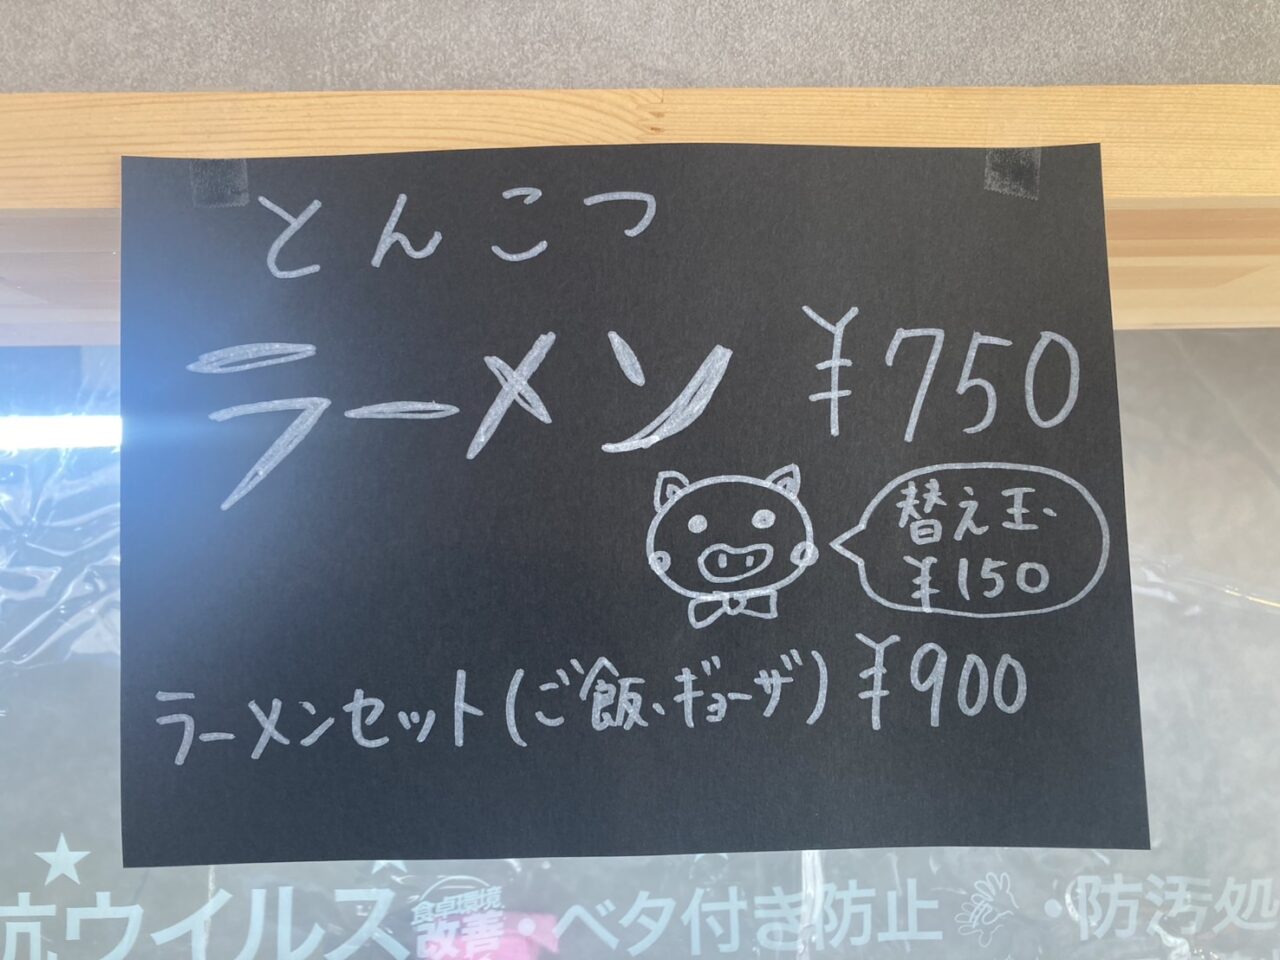 とんこつ
ラーメン ¥750
替え玉
¥150
ラーメンセット(ご飯、ギョーザ) ¥900
抗ウイルス 食卓環境 改善・ベタ付き防止 ・防汚処